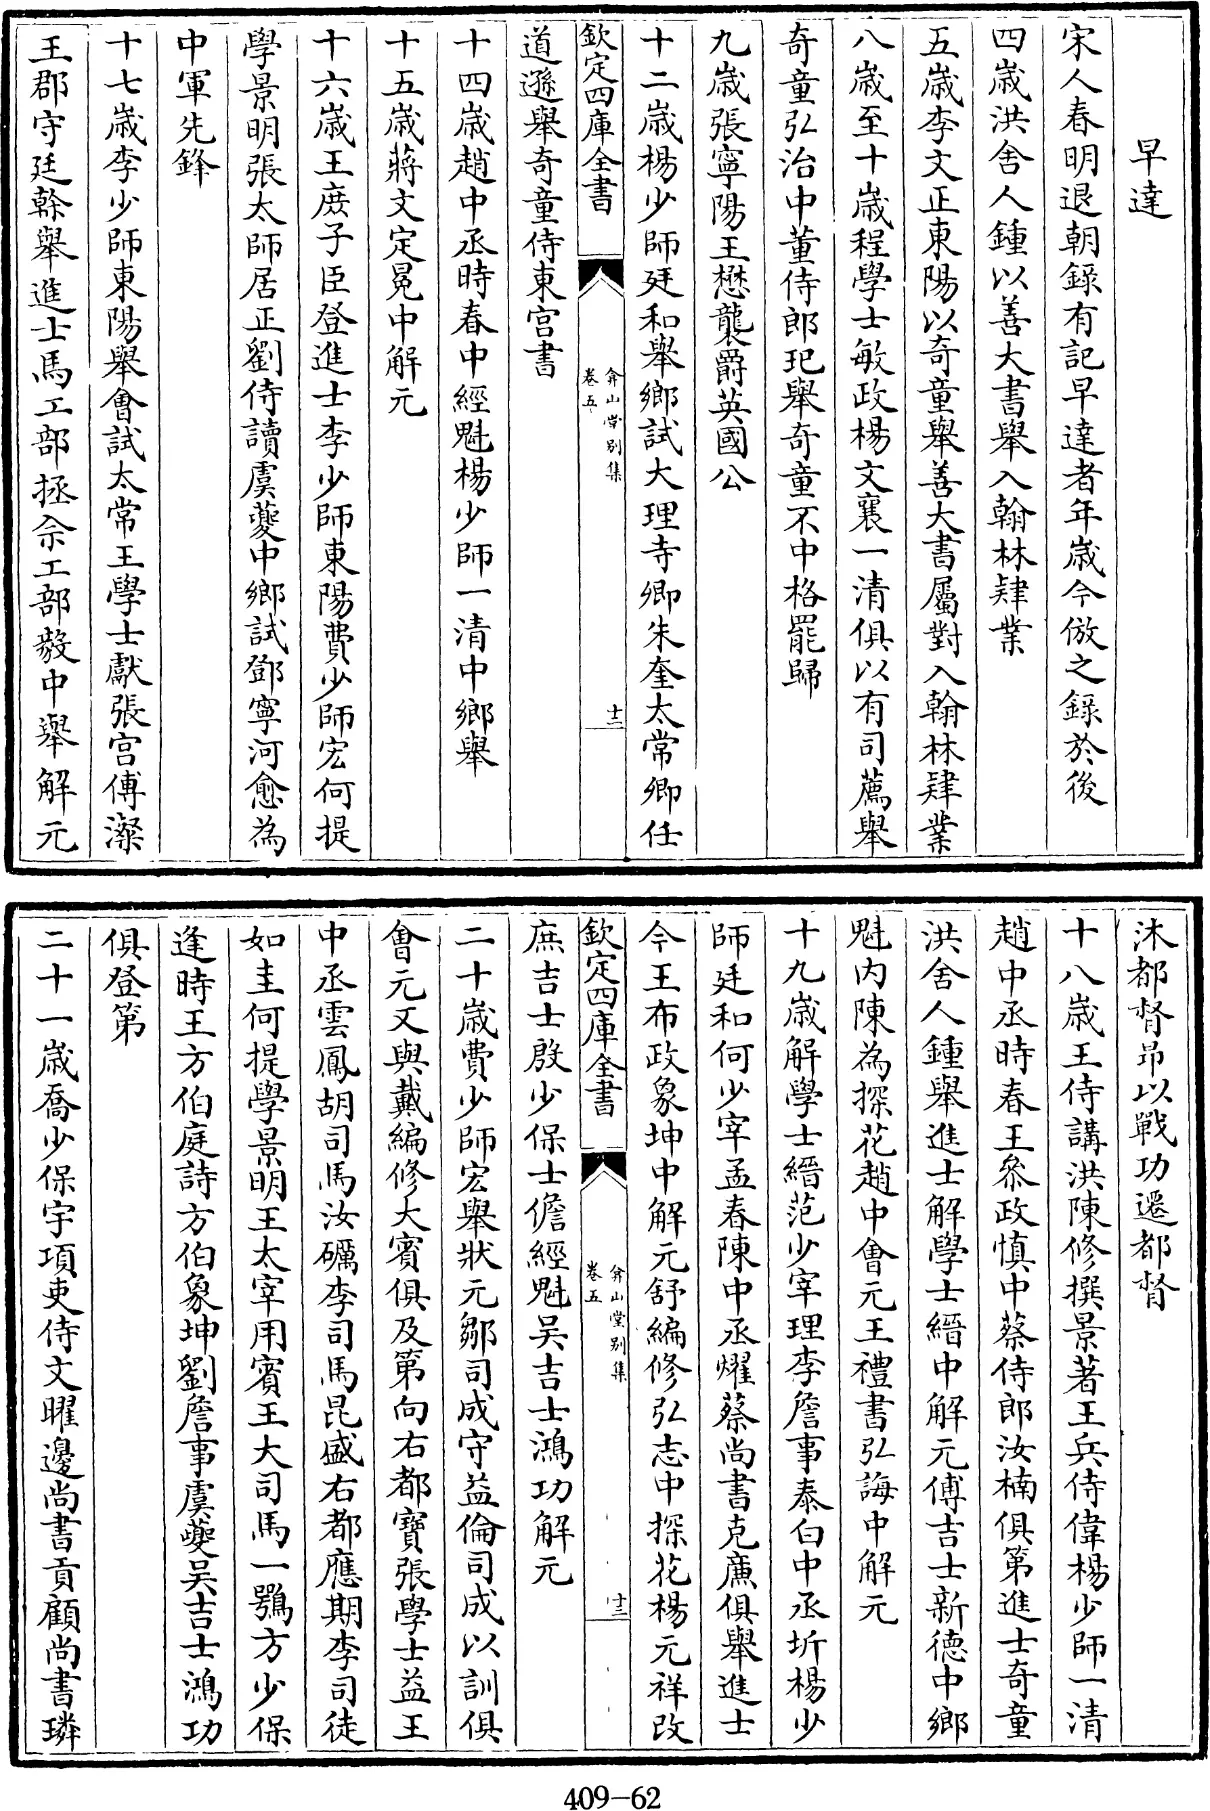 早達
宋人春明退朝錄有記早達者年歲今倣之錄於後
四歲洪舍人鍾以善大書舉入翰林肄業
五歲李文正東陽以奇童舉善大書屬對入翰林肄業
八歲至十歲程學士敏政楊文襄一清俱以有司薦舉
奇童弘治中董侍郎玘舉奇童不中格罷歸
九歲張寧陽王懋襲爵英國公
十二歲楊少師廷和舉鄉試大理寺卿朱奎太常卿任
欽定四庫全書
弇山堂別集
卷五
十二
道遜舉奇童侍東宮書
十四歲趙中丞時春中經魁楊少師一清中鄉舉
十五歲蔣文定冕中解元
十六歲王庶子臣登進士李少師東陽費少師宏何提
學景明張太師居正劉侍讀虞夔中鄉試鄧寧河愈為
中軍先鋒
十七歲李少師東陽舉會試太常王學士獻張宮傅潔
王郡守廷榦舉進士馬工部拯佘工部毅中舉解元
沐都督昂以戰功遷都督
十八歲王侍講洪陳修撰景著王兵侍偉楊少師一清
趙中丞時春王叅政慎中蔡侍郎汝楠俱第進士奇童
洪舍人鍾舉進士解學士縉中解元傅吉士新德中鄉
魁內陳為探花趙中會元王禮書弘誨中解元
十九歲解學士縉范少宰理李詹事泰白中丞圻楊少
師廷和何少宰孟春陳中丞燿蔡尚書克廉俱舉進士
今王布政象坤中解元舒編修弘志中探花楊元祥改
欽定四庫全書
弇山堂別集
卷五
十三
庶吉士殷少保士儋經魁吳吉士鴻功解元
二十歲費少師宏舉狀元鄒司成守益倫司成以訓俱
會元又與戴編修大賓俱及第向右都寶張學士益王
中丞雲鳳胡司馬汝礪李司馬昆盛右都應期李司徒
如圭何提學景明王太宰用賓王大司馬一鶚方少保
逢時王方伯庭詩方伯象坤劉詹事虞夔吳吉士鴻功
俱登第
二十一歲喬少保宇項吏侍文曜邊尚書貢顧尚書璘
409-62